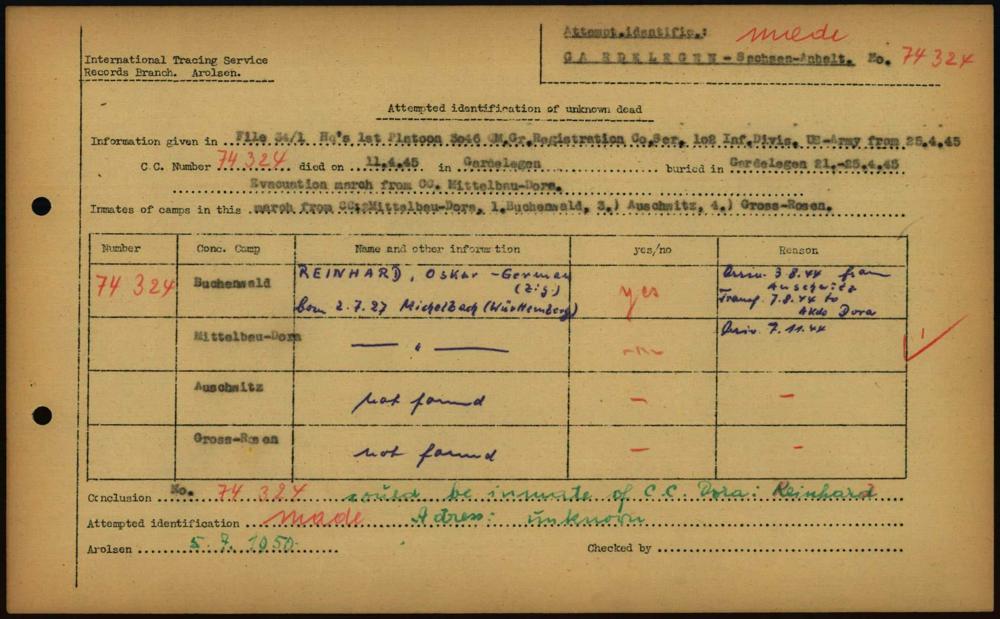 Attempt.identific.: made
International Tracing Service
Records Branch. Arolsen.
GARDELEGEN - Sachsen-Anhalt. No. 74324
Attempted identification of unknown dead
Information given in File 34/1 Hq's 1st Platoon 3046 QM.Gr.Registration Co.Ser. 102 Inf.Divis. US-Army from 25.4.45
C.C. Number 74324 died on 11.4.45 in Gardelegen buried in Gardelegen 21.-25.4.45
Evacuation march from CC. Mittelbau-Dora.
Inmates of camps in this march from CC: Mittelbau-Dora, 1. Buchenwald, 3.) Auschwitz, 4.) Gross-Rosen.
Number Conc. Camp Name and other information yes/no Reason
74324 Buchenwald REINHARD, Oskar - German yes Arriv. 3.8.44 from
(Zig.) Auschwitz
born 2.7.27 Michelbach (Württemberg) Transf. 7.8.44 to
Akdo Dora
Mittelbau-Dora — " — Arriv. 7.11.44
Auschwitz not found — —
Gross-Rosen not found — —
Conclusion No. 74324 could be inmate of C.C. Dora: Reinhard
Attempted identification made Adress: unknown
Arolsen 5.7.1950. Checked by